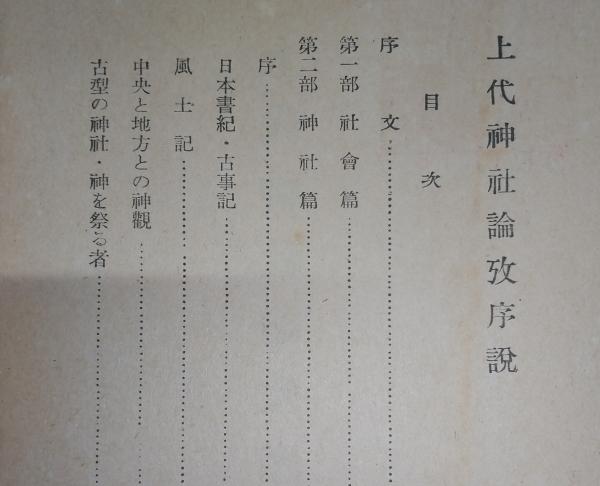 上代神社論攷序說
目次
序文
第一部社會篇
第二部神社篇
序
日本書紀・古事記
風土記
中央と地方との神觀
古型の神社・神を祭る者